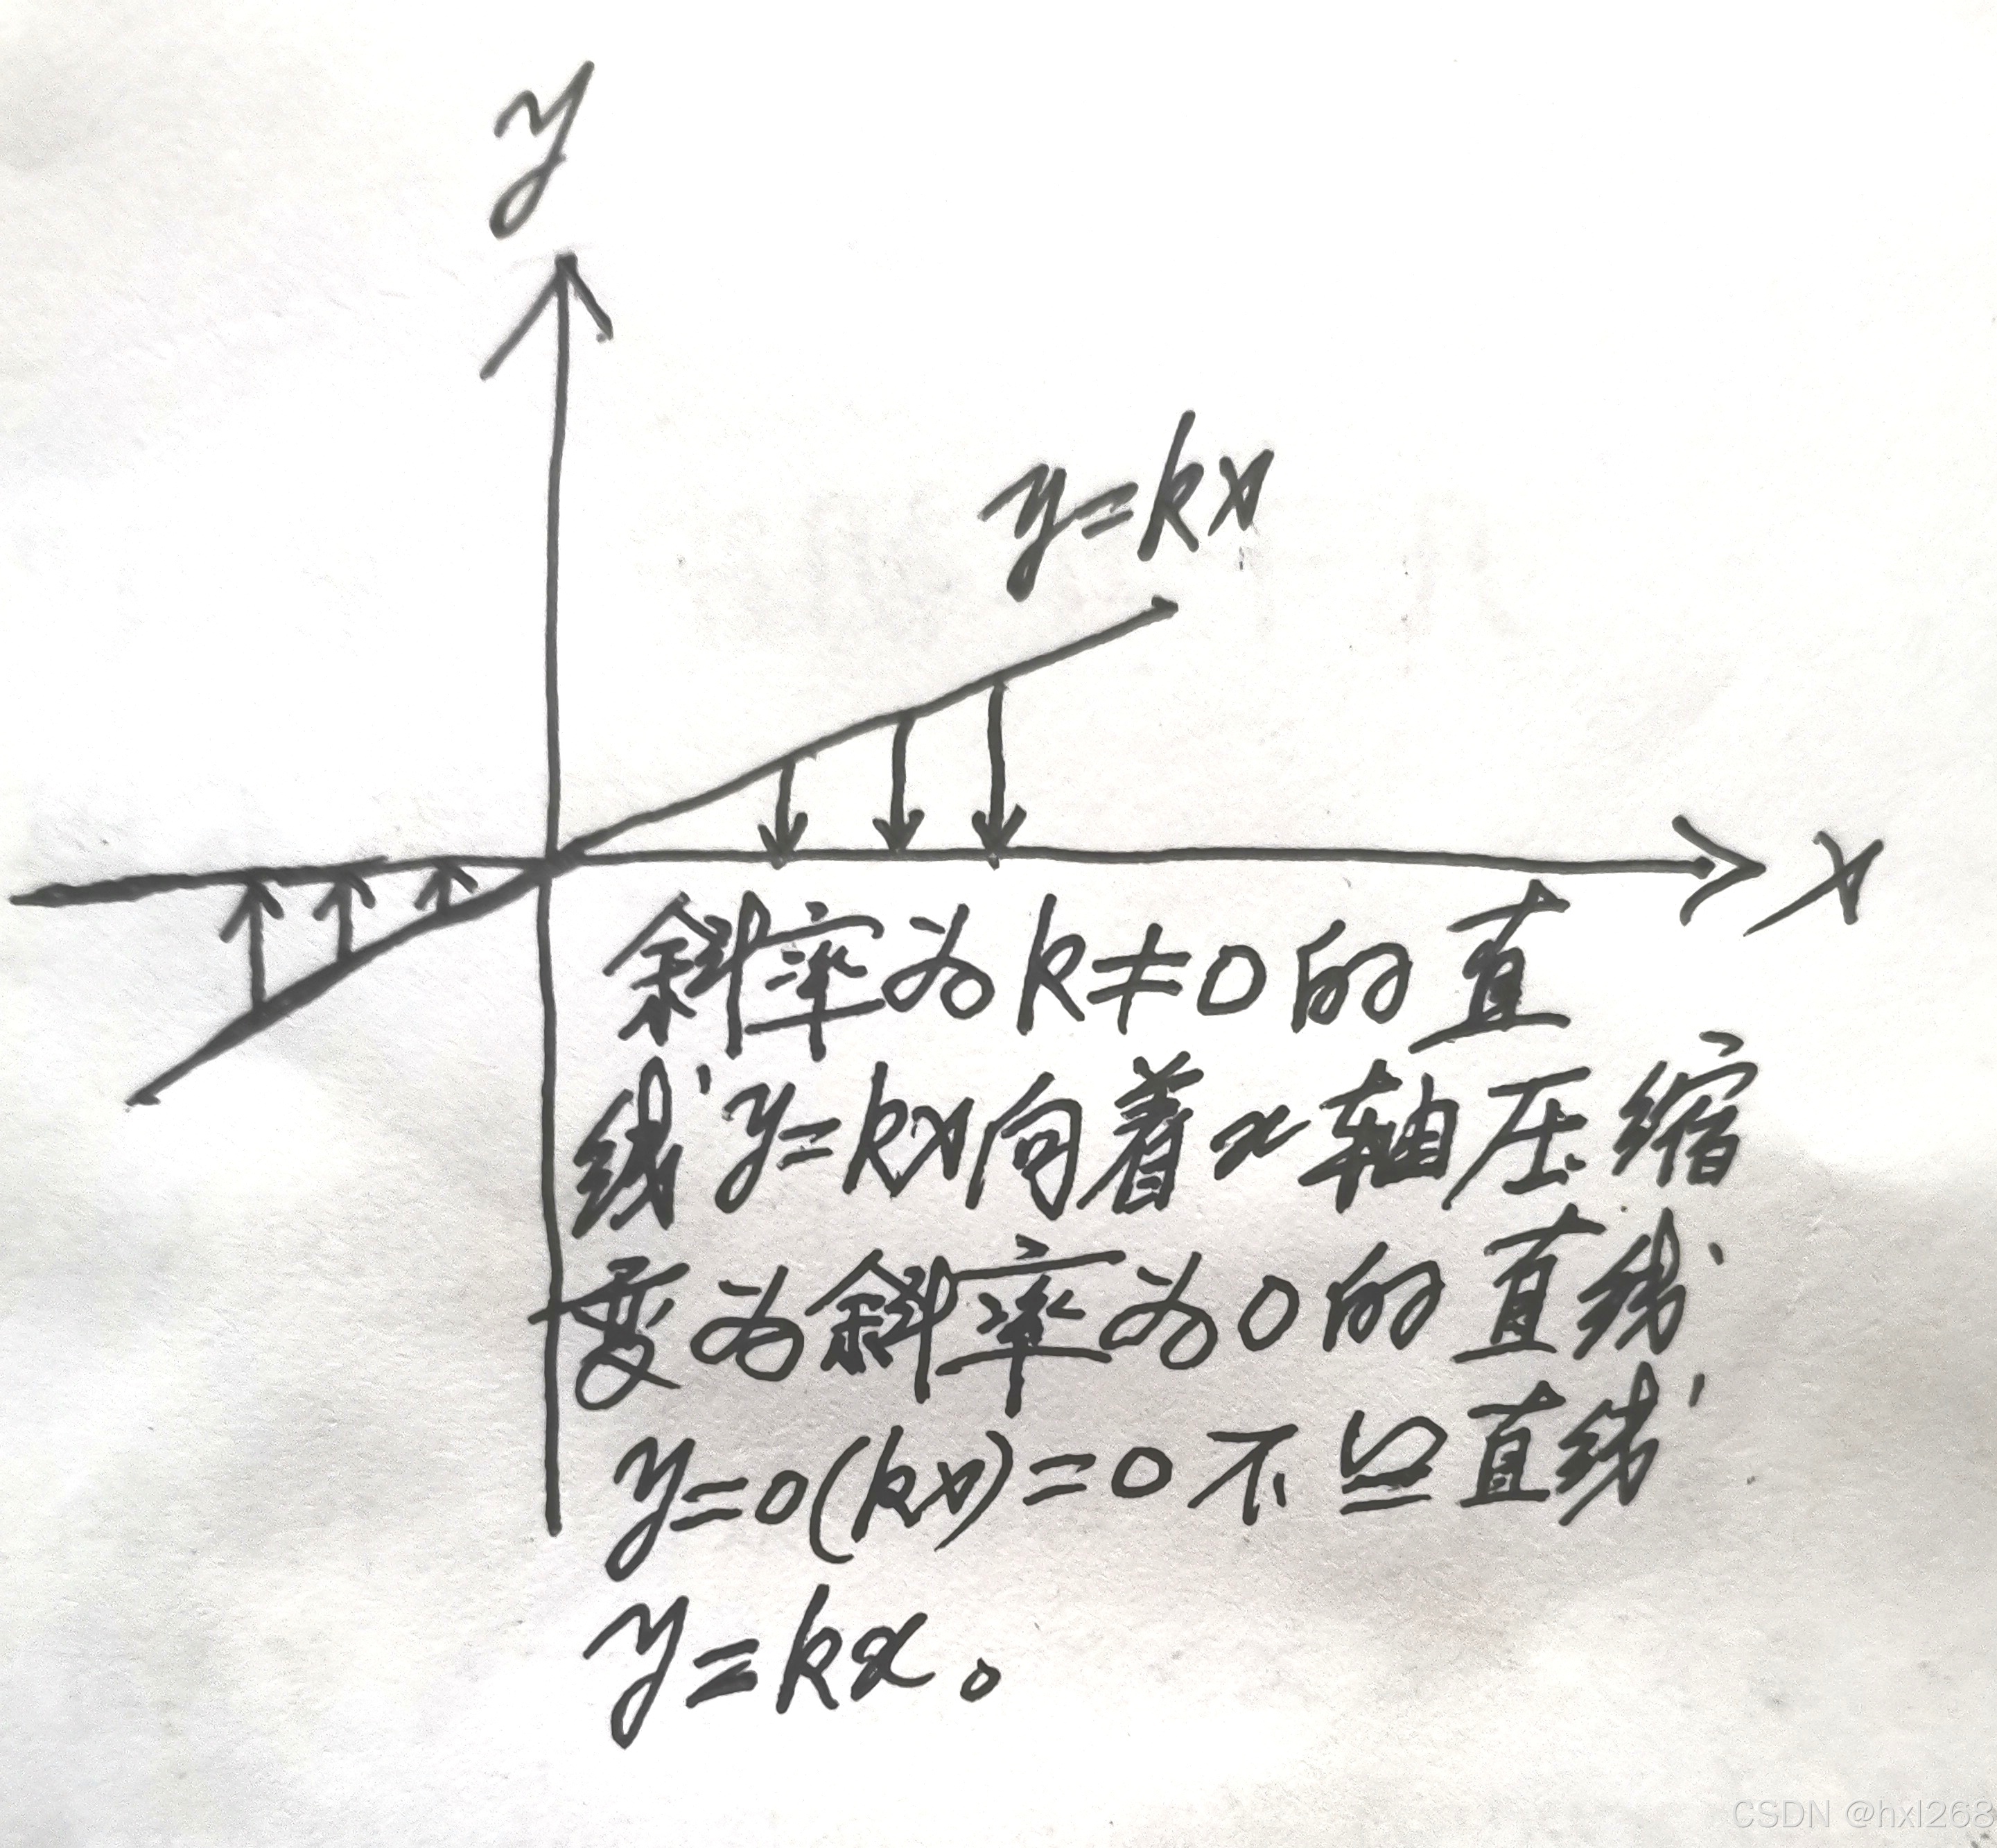 y
y=kx
x
斜率为k≠0的直
线y=kx向着x轴压缩
变为斜率为0的直线
y=0(kx)=0不≌直线
y=kx。
CSDN @hxl268